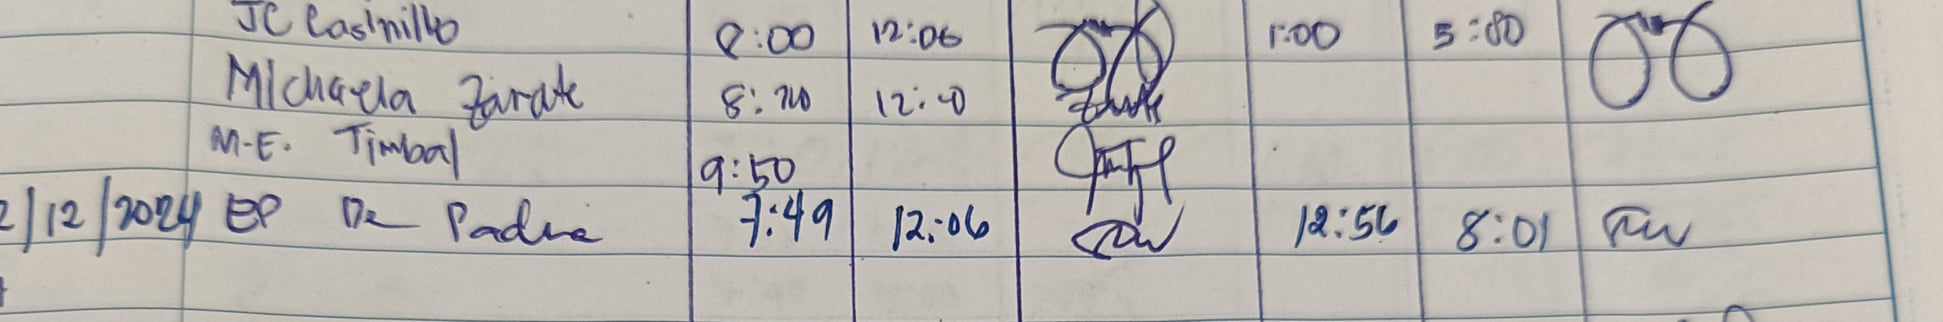 JC Casinillo 8:00 12:06 1:00 5:00
Michaela Zarate 8:20 12:40 Zarate
M.E. Timbal 9:50
2/12/2024 EP De Padua 7:49 12:06 12:56 8:01